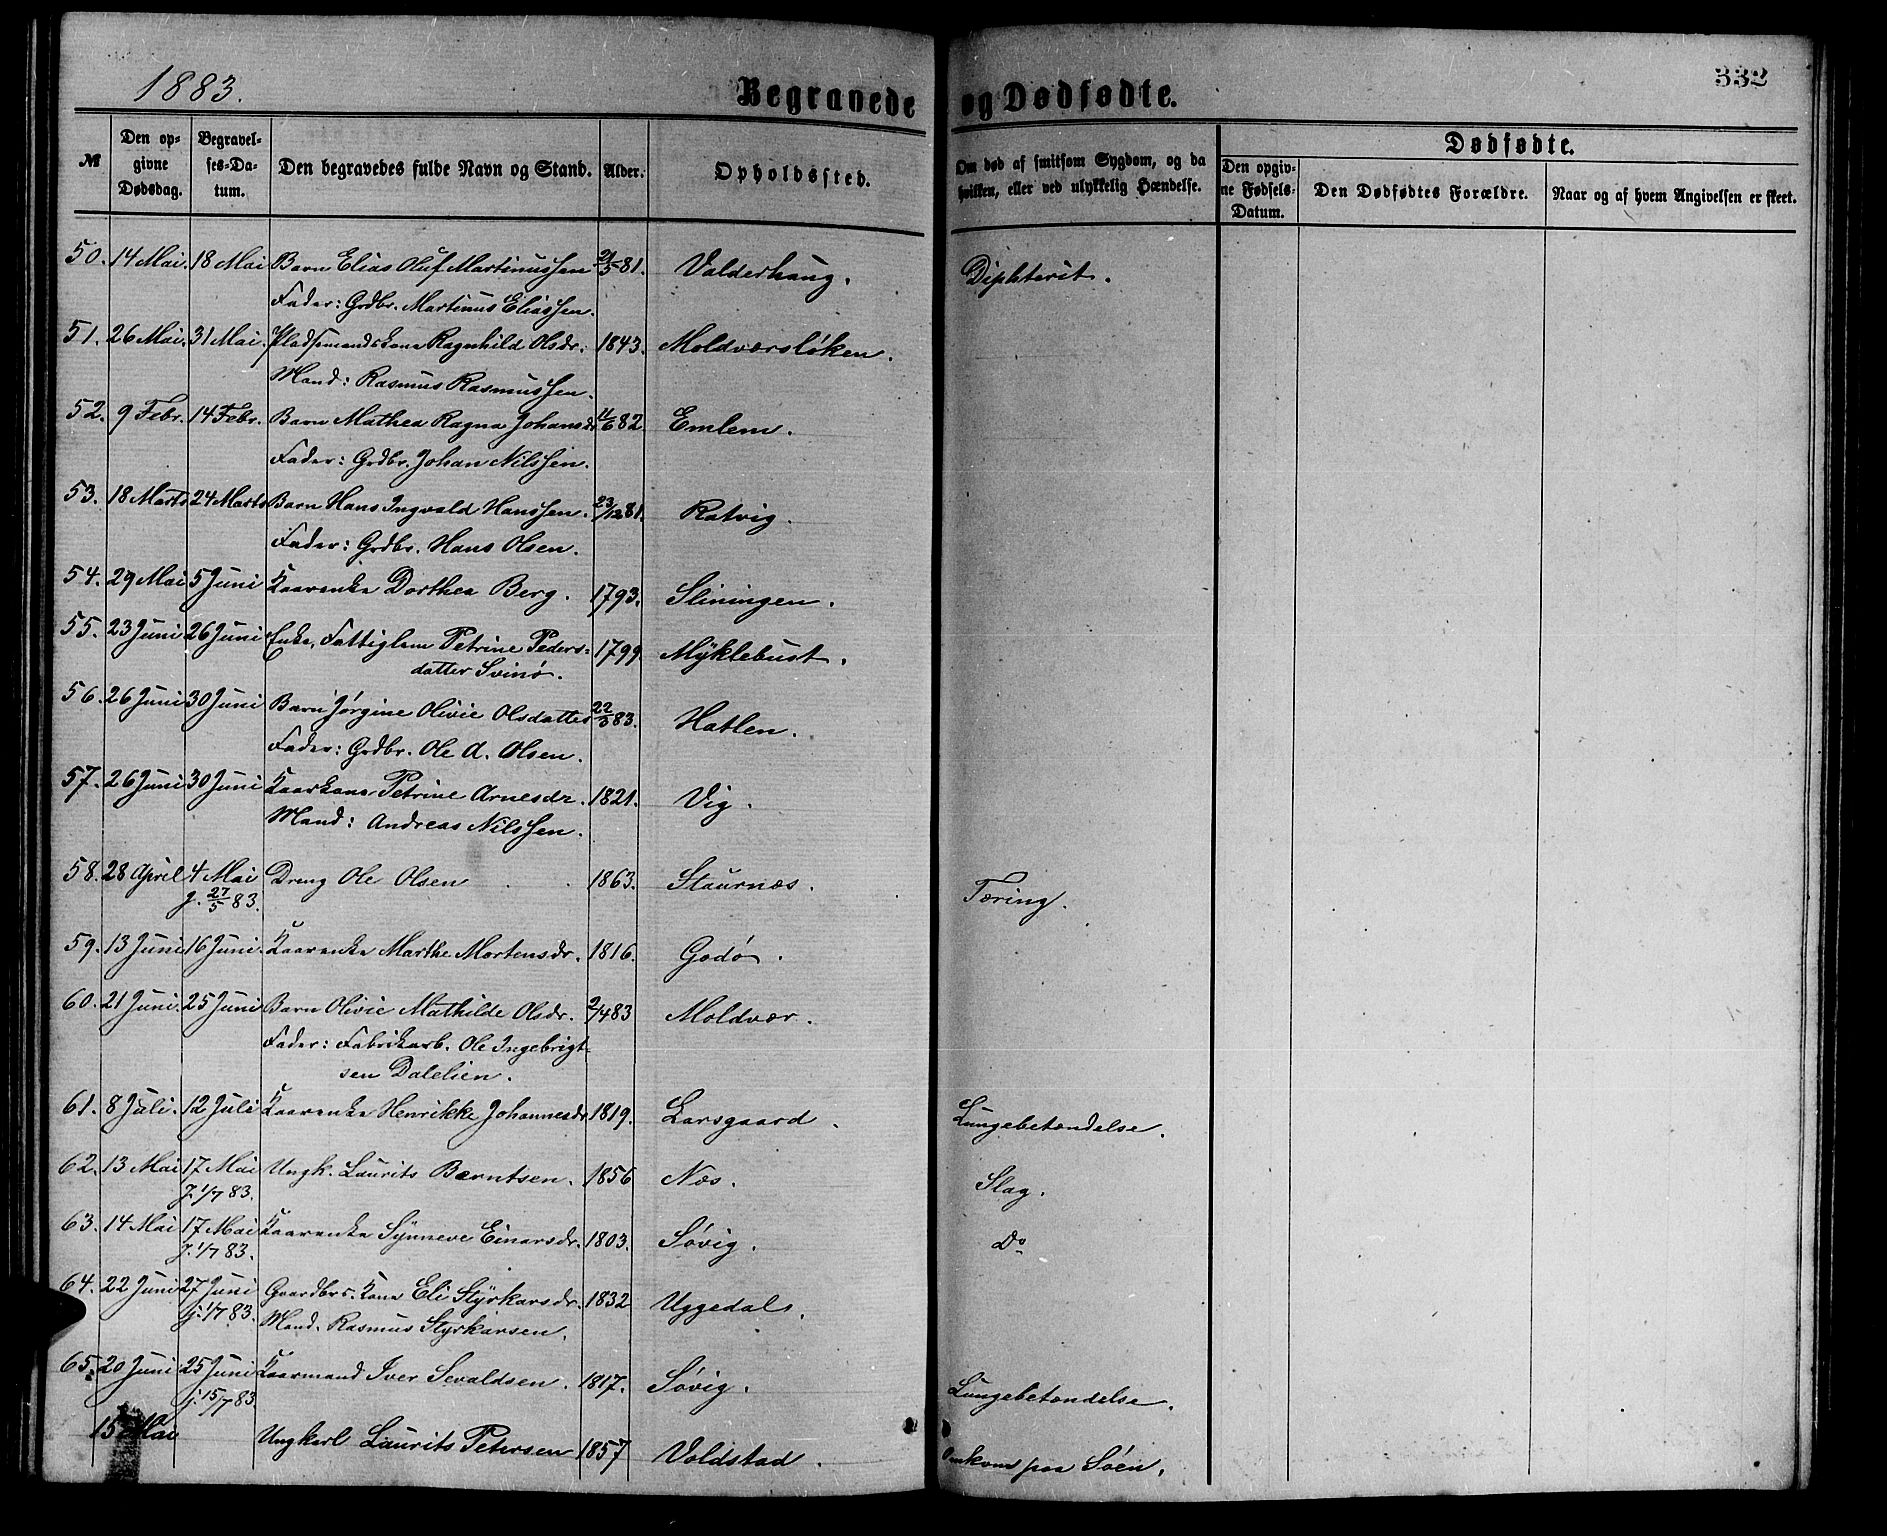 1883.
Begravede og Dødfødte.
332
№
Den opgivne Dødsdag.
Begravelses-Datum.
Den begravedes fulde Navn og Stand.
Alder.
Opholdssted.
Om død af smitsom Sygdom, og da hvilken, eller ved ulykkelig Hændelse.
Dødfødte.
Den opgivne Fødsels-Datum.
Den Dødfødtes Forældre.
Naar og af hvem Angivelsen er skeet.
50. 14 Mai. 18 Mai Barn Elias Oluf Martinussen 2/5 81. Valderhaug. Diphterit.
Fader: Grdbr. Martinus Eliassen.
51. 26 Mai. 31 Mai. Pladsemandskone Ragnhild Olsdr. 1843. Moldværsløken.
Mand: Rasmus Rasmussen.
52. 9 Febr. 14 Febr. Barn Mathea Ragna Johansdr. 11/6 82 Emlem.
Fader: Grdbr. Johan Nilssen.
53. 18 Marts 24 Marts Barn Hans Ingvald Hanssen. 23/12 81. Ratvig.
Fader: Grdbr. Hans Olsen.
54. 29 Mai 5 Juni Kaarenke Dorthea Berg. 1793. Sliningen.
55. 23 Juni 26 Juni Enke, Fattiglem Petrine Peders-
datter Svinø. 1799. Myklebust.
56. 26 Juni 30 Juni Barn Jørgine Olivie Olsdatter 22/5 83. Hatlen.
Fader: Grdbr. Ole A. Olsen.
57. 26 Juni 30 Juni Kaarkone Petrine Arnesdr. 1821. Vig.
Mand: Andreas Nilssen.
58. 28 April 4 Mai Dreng Ole Olsen 1863. Staurnæs. Tæring.
j. 27/5 83.
59. 13 Juni 16 Juni. Kaarenke Marthe Mortensdr. 1816. Godø.
60. 21 Juni. 25 Juni Barn Olivie Mathilde Olsdr. 2/4 83 Moldvær.
Fader: Fabrikarb. Ole Ingebrigt-
sen Dalelien.
61. 8 Juli. 12 Juli Kaarenke Henrikke Johannesdr 1819. Larsgaard. Lungebetændelse.
62. 13 Mai 17 Mai Ungk. Laurits Berntsen. 1856 Næs. Slag.
J. 1/7 83.
63. 14 Mai 17 Mai Kaarenke Synneve Einarsdr. 1803. Søvig. Do
J. 1/7 83.
64. 22 Juni 27 Juni Gaardbrs. Kone Eli Styrkarsdr. 1832 Uggedal.
j. 1/7 83. Mand. Rasmus Styrkarsen.
65. 20 Juni 25 Juni Kaarmand Iver Sevaldsen. 1817. Søvig. Lungebetændelse.
j. 15/7 83
15 Mai Ungkarl Laurits Petersen 1857 Valdstad. Omkom paa Søen.